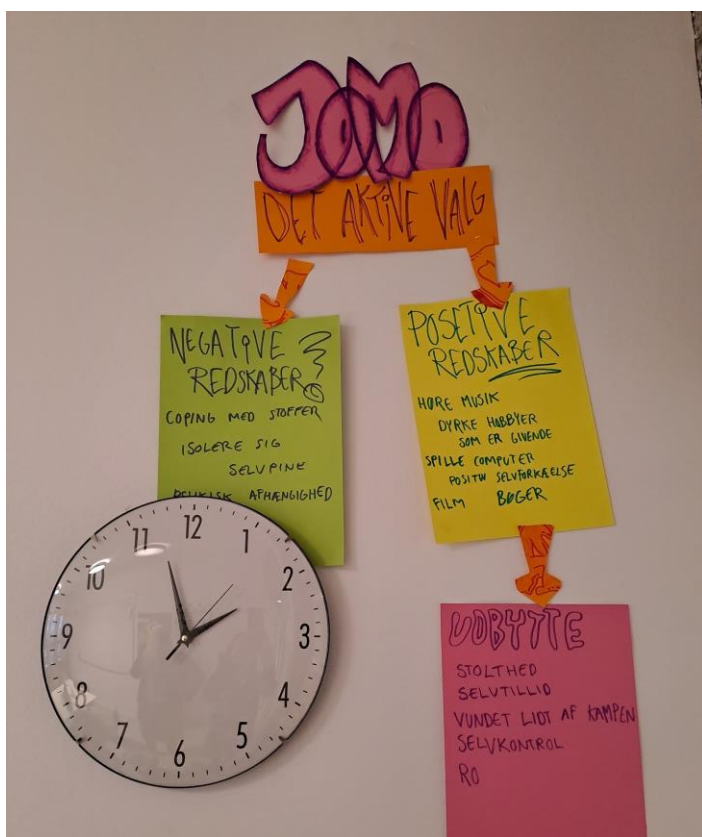 JOMO
DET AKTIVE VALG
NEGATIVE
REDSKABER
COPING MED STOFFER
ISOLERE SIG
SELVPINE
AFHÆNGIGHED
POSETIVE
REDSKABER
HØRE MUSIK
DYRKE HOBBYER
SOM ER GIVENDE
SPILLE COMPUTER
POSITIV SELVFORKÆLSE
FILM BØGER
UDBYTTE
STOLTHED
SELVTILLID
VUNDET LIDT AF KAMPEN
SELVKONTROL
RO
12
1
2
3
4
5
6
7
8
9
10
11